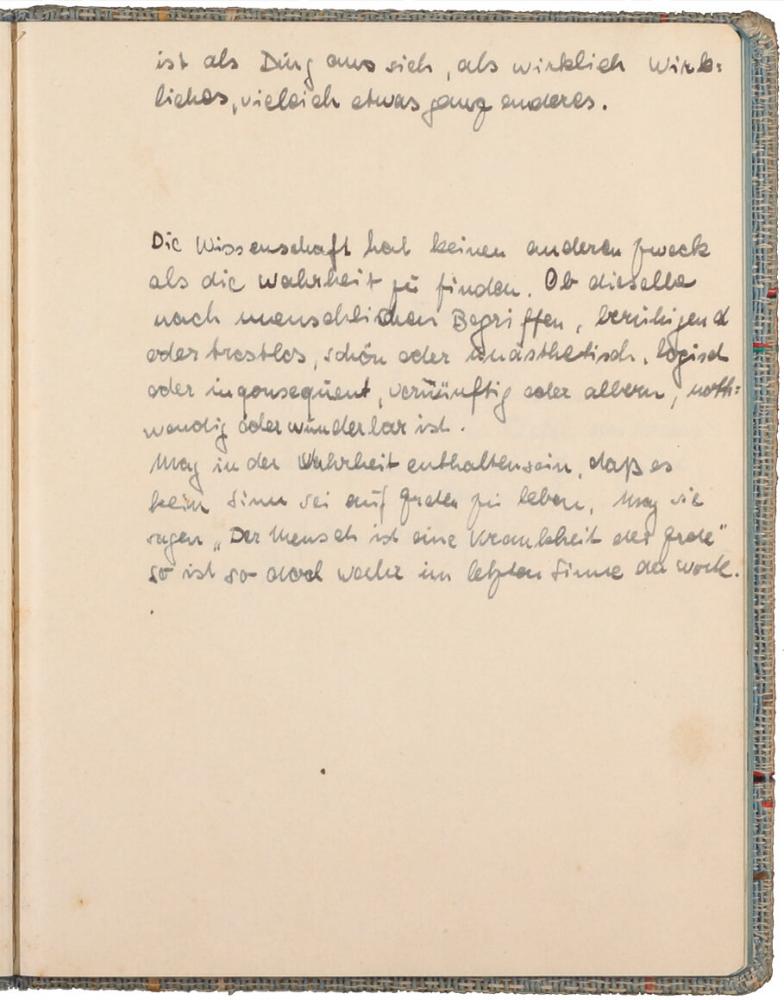 ist als Ding aus sich, als wirklich Wirk=
liches, vieleich etwas ganz anderes.
Die Wissenschaft hat keinen anderen Zweck
als die Wahrheit zu finden. Ob dieselbe
nach menschlichen Begriffen, beruhigend
oder trostlos, schön oder unästhetisch, logisch
oder inqonsequent, vernünftig oder albern, noth=
wendig oder wunderbar ist.
Mag in der Wahrheit enthalten sein, daß es
kein Sinn sei auf Erden zu leben, mag sie
sagen „Der Mensch ist eine Krankheit der Erde"
so ist so doch wahr im letzten Sinne